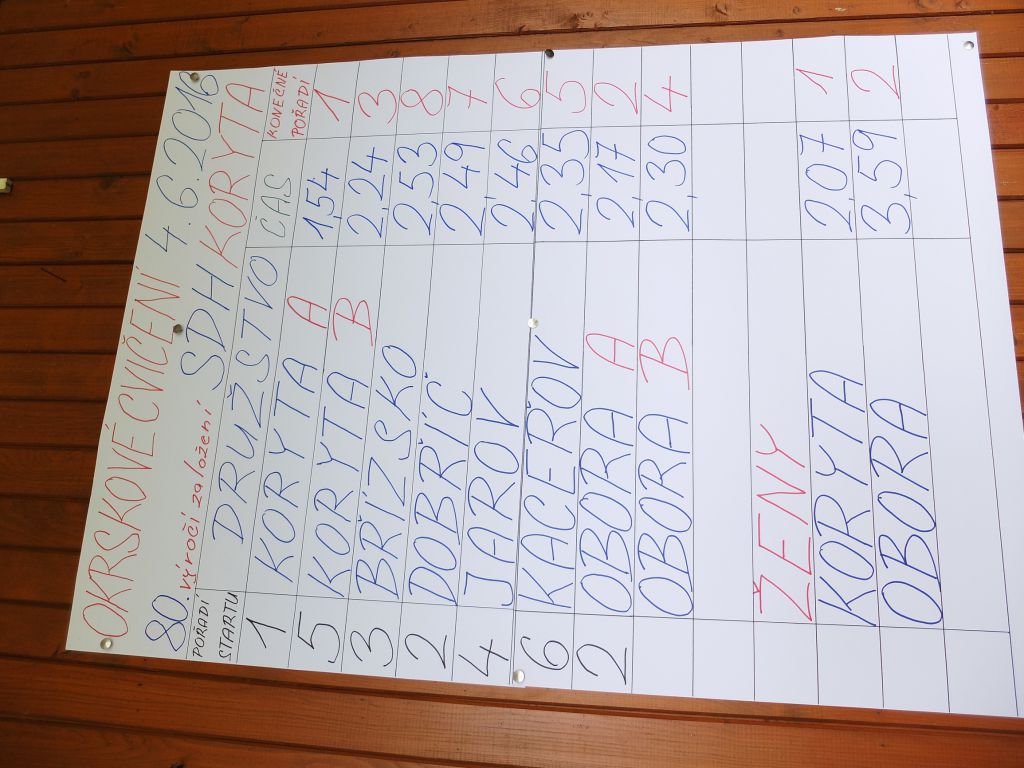 OKRSKOVÉ CVIČENÍ 4.6.2016
80 výročí založení SDH KORYTA
POŘADÍ STARTU DRUŽSTVO ČAS KONEČNÉ POŘADÍ
1 KORYTA A 1,54 1
5 KORYTA B 2,24 3
3 BŘÍZSKO 2,53 8
2 DOBŘÍČ 2,49 7
4 JAROV 2,46 6
6 KACEŘOV 2,35 5
2 OBORA A 2,17 2
OBORA B 2,30 4
ŽENY
KORYTA 2,07 1
OBORA 3,59 2